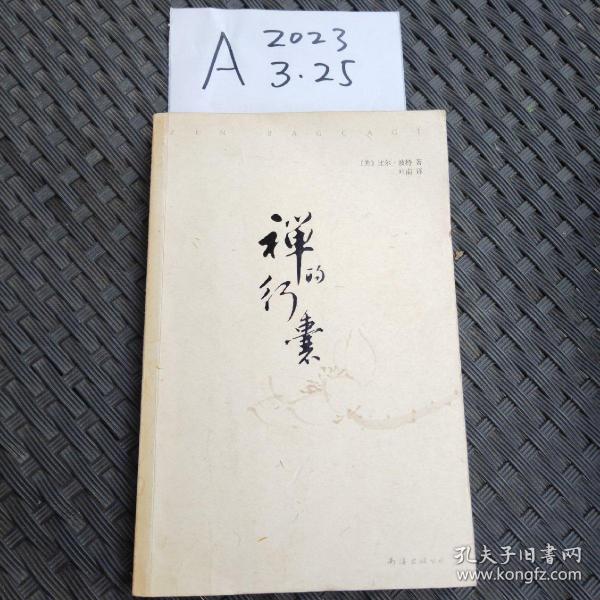 A 2023
3.25
ZEN BAGGAGE
〔美〕比尔·波特 著
叶南 译
禅的行囊
南海出版公司
孔夫子旧书网
www.kongfz.com